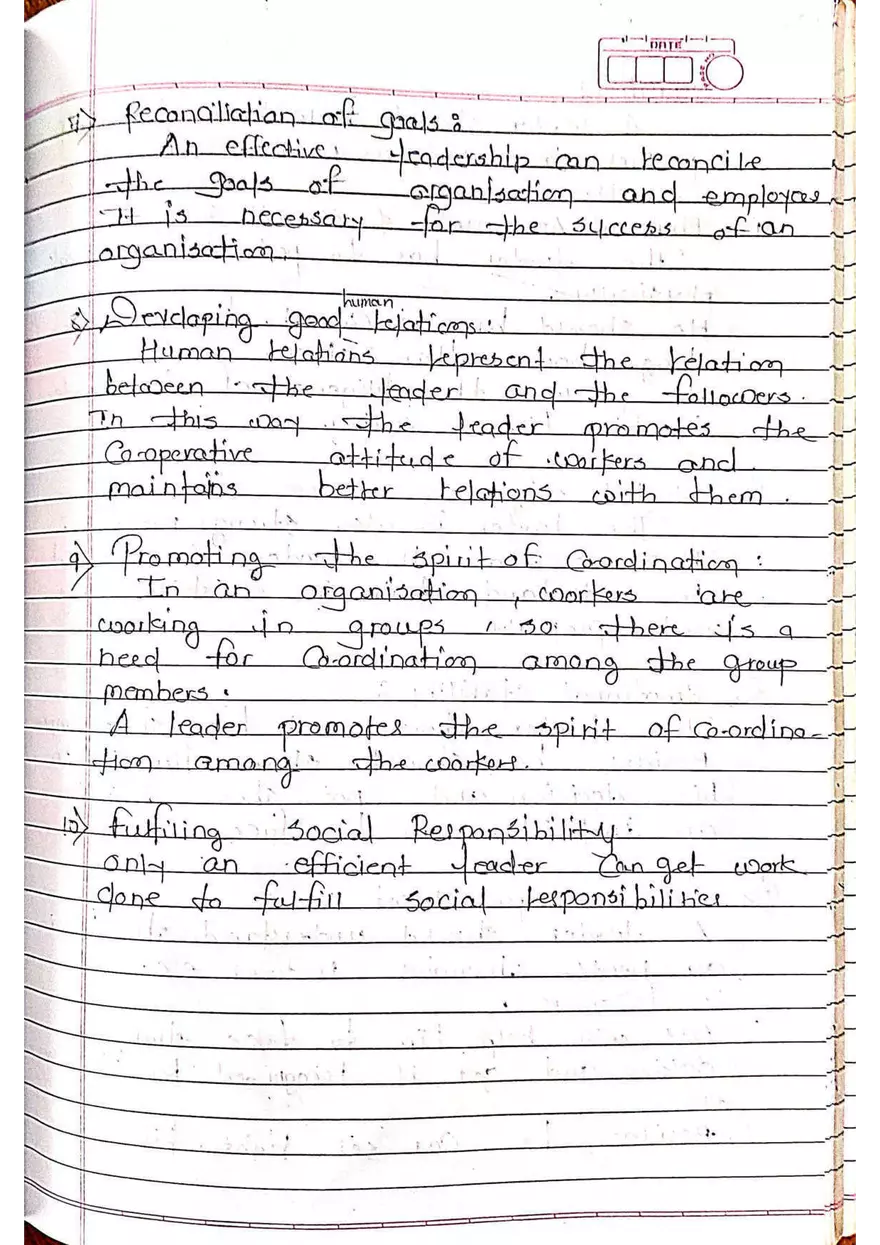 DATE
Reconciliation of goals :
An effective leadership can reconcile
the goals of organisation and employees
It is necessary for the success of an
organisation.
8) Developing good human relations :
Human relations represent the relation
between the leader and the followers.
In this way the leader promotes the
Co-operative attitude of workers and
maintains better relations with them.
9) Promoting the spirit of Co-ordination :
In an organisation, workers are
working in groups, so there is a
need for Co-ordination among the group
members.
A leader promotes the spirit of Co-ordina-
tion among the workers.
10) Fulfiling Social Responsibility :
only an efficient leader can get work
done to fulfill social responsibilities